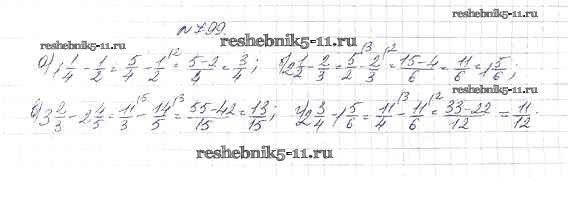 №799
reshebnik5-11.ru
reshebnik5-11.ru
reshebnik5-11.ru
а) 1 1/4 - 1/2 = 5/4 - 1/2 |2 = 5-2/4 = 3/4; 2 1/2 - 2/3 = 5/2 |3 - 2/3 |2 = 15-4/6 = 11/6 = 1 5/6;
reshebnik5-11.ru
б) 3 2/3 - 2 4/5 = 11/3 |5 - 14/5 |3 = 55-42/15 = 13/15; 2 3/4 - 1 5/6 = 11/4 |3 - 11/6 |2 = 33-22/12 = 11/12.
reshebnik5-11.ru